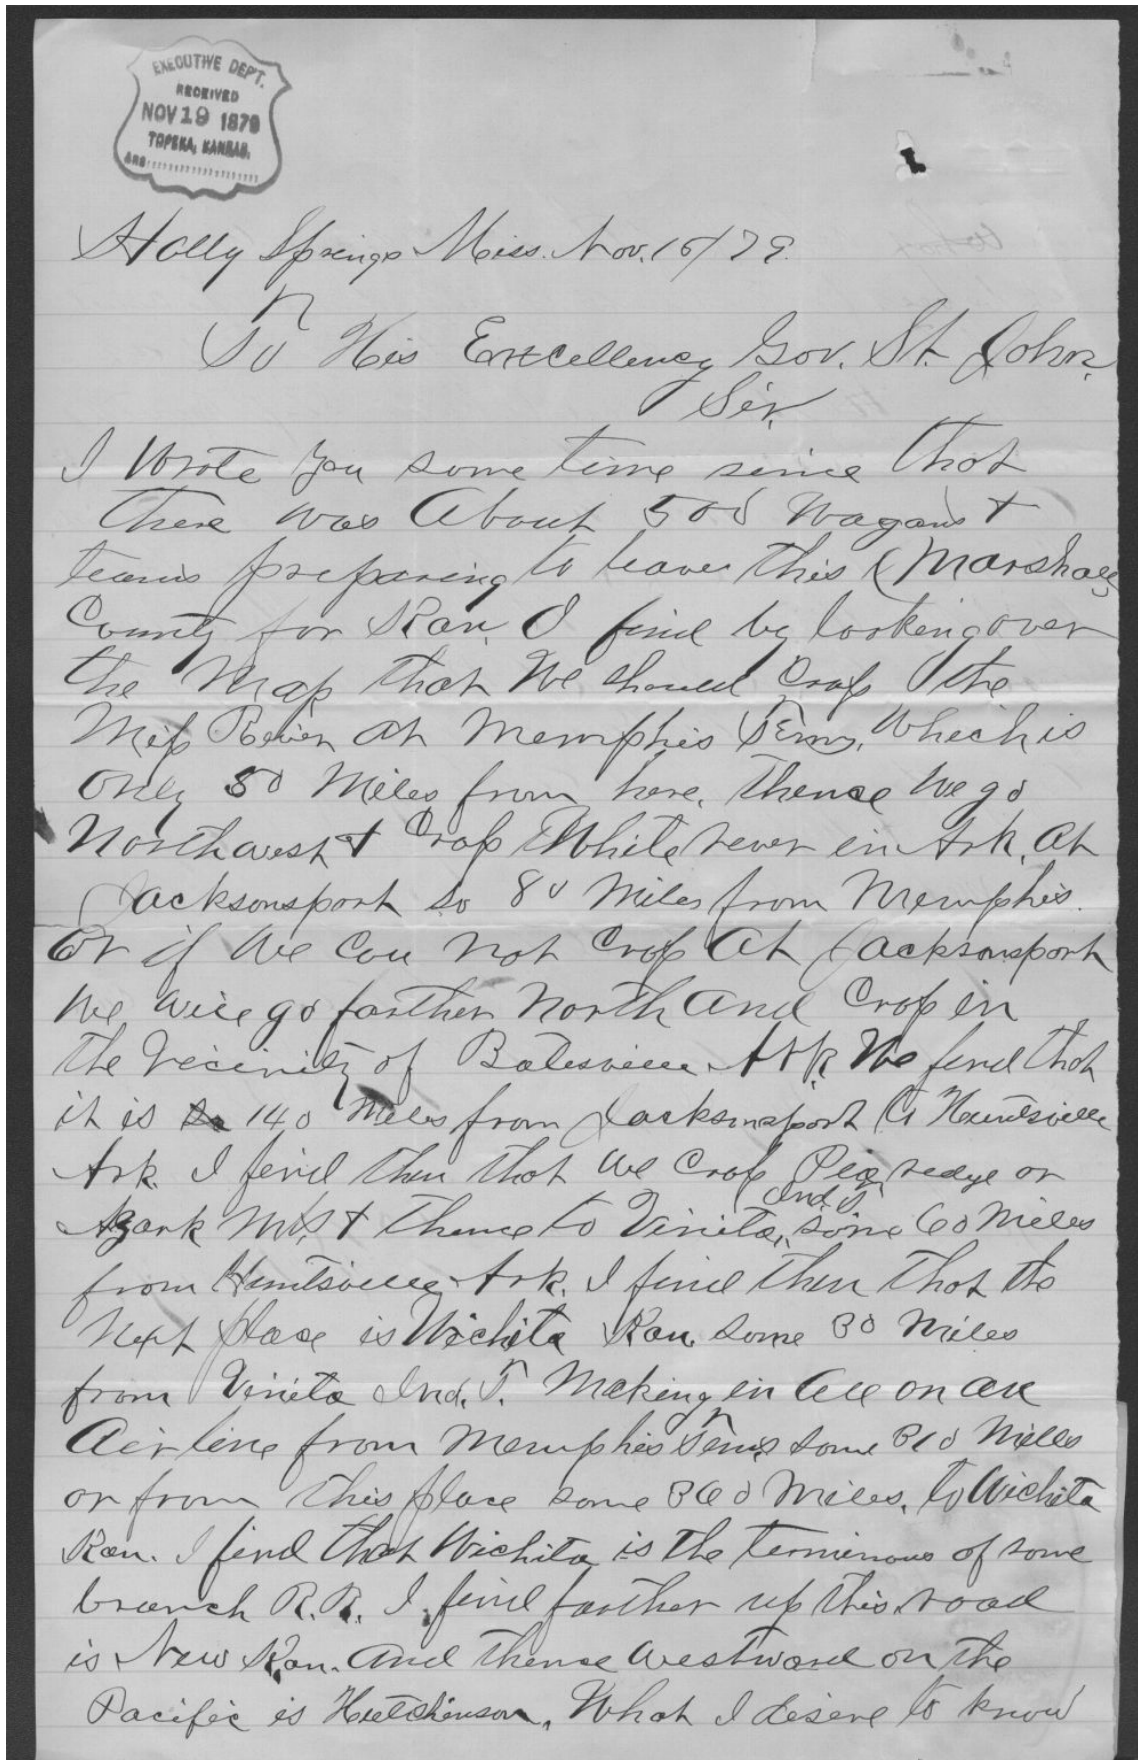 EXECUTIVE DEPT.
RECEIVED
NOV 19 1879
TOPEKA, KANSAS.
ANS
Holly Springs Miss. Nov. 15/79.
To His Excellency Gov. St. John.
Sir,
I wrote you some time since that
there was About 500 Wagons &
teams preparing to leave this (Marshall
County for Kan. I find by looking over
the Map that We should Cross the
Miss River at Memphis Tenn, Which is
only 50 Miles from here, thence We go
Northwest & Cross White river in Ark. At
Jacksonsport so 80 Miles from Memphis.
Or if We Can not Cross At Jacksonsport
We Will go farther North And Cross in
the Vicinity of Batesville Ark We find that
it is 140 Miles from Jacksonsport to Huntsville
Ark. I find then that We Cross Pea redge or
Ozark Mts, & thence to Vinita, Ind. T. some 60 Miles
from Huntsville Ark. I find then that the
Next place is Wichita Kan. some 80 Miles
from Vinita Ind. T. Making in All on an
Air line from Memphis Tenn some 310 Miles
or from this place some 360 Miles, to Wichita
Kan. I find that Wichita is the terminous of some
branch R.R. I find farther up this road
is New Kan. And thence Westward on the
Pacific is Hutchinson, What I desire to know